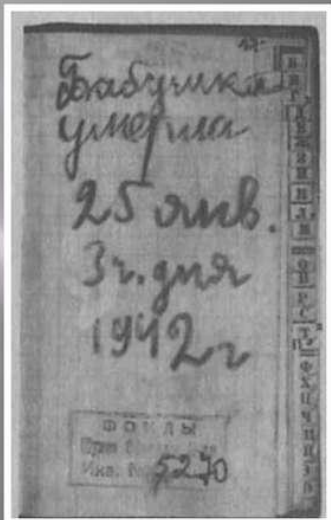 Бабушка
умерла
25 янв.
3 ч. дня
1942 г
ФОНДЫ
Инв.
5270